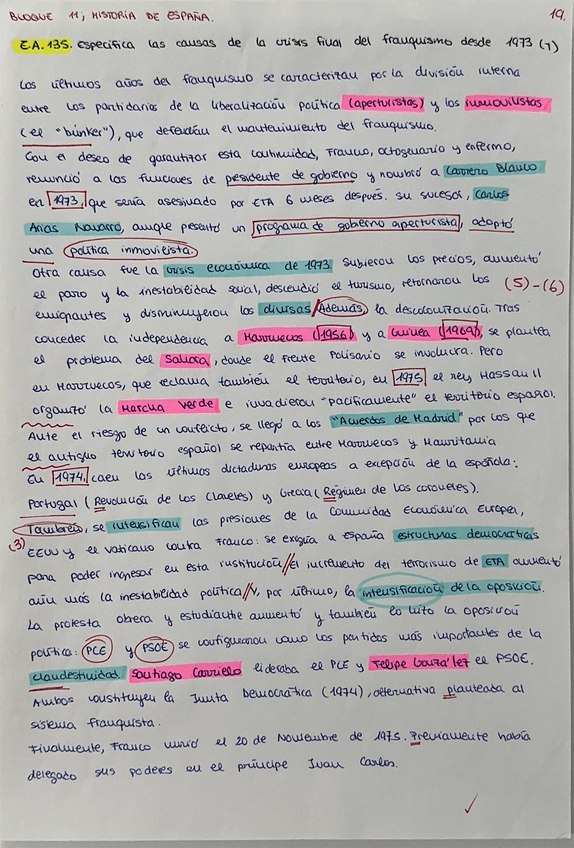 BLOQUE 11, HISTORIA DE ESPAÑA. 19.
E.A. 135. Especifica las causas de la crisis final del franquismo desde 1973 (7)
Los últimos años del franquismo se caracterizan por la división interna
entre los partidarios de la liberalización política (aperturistas) y los inmovilistas
(el "búnker"), que defendían el mantenimiento del franquismo.
Con el deseo de garantizar esta continuidad, Franco, octogenario y enfermo,
renunció a las funciones de presidente de gobierno y nombró a Carrero Blanco
en 1973, que sería asesinado por ETA 6 meses después. Su sucesor, Carlos
Arias Navarro, aunque presentó un programa de gobierno aperturista, adoptó
una política inmovilista.
Otra causa fue la crisis económica de 1973. Subieron los precios, aumentó
el paro y la inestabilidad social, descendió el turismo, retornaron los (5)-(6)
emigrantes y disminuyeron las divisas // Además, la descolonización. Tras
conceder la independencia a Marruecos (1956) y a Guinea (1969), se plantea
el problema del Sahara, donde el Frente Polisario se involucra. Pero
en Marruecos, que reclama también el territorio, en 1975 el rey Hassan II
organizó la Marcha Verde e invadieron "pacíficamente" el territorio español.
Ante el riesgo de un conflicto, se llegó a los "Acuerdos de Madrid" por los que
el antiguo territorio español se repartía entre Marruecos y Mauritania
En 1974, caen las últimas dictaduras europeas a excepción de la española:
Portugal (Revolución de los Claveles) y Grecia (Régimen de los coroneles).
También, se intensifican las presiones de la Comunidad Económica Europea,
(3) EEUU y el Vaticano contra Franco: se exigía a España estructuras democráticas
para poder ingresar en esta institución // El incremento del terrorismo de ETA aumentó
aún más la inestabilidad política // Y, por último, la intensificación de la oposición.
La protesta obrera y estudiantil aumentó y también lo hizo la oposición
política: PCE y PSOE se configuraron como los partidos más importantes de la
clandestinidad. Santiago Carrillo lideraba el PCE y Felipe González el PSOE.
Ambos constituyen la Junta Democrática (1974), alternativa planteada al
sistema franquista.
Finalmente, Franco murió el 20 de Noviembre de 1975. Previamente había
delegado sus poderes en el príncipe Juan Carlos.